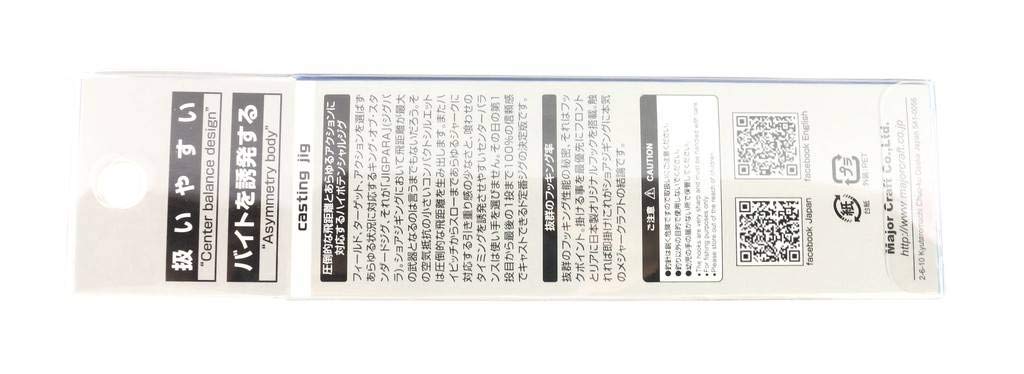 扱いやすい
“Center balance design”
バイトを誘発する
“Asymmetry body”
casting jig
圧倒的な飛距離とあらゆるアクションに
対応するハイポテンシャルジグ
フィールド、ターゲット、アクションを選ばず
あらゆる状況に対応するキング・オブ・スタ
ンダードジグ、それが「JIGPARA」(ジグパ
ラ)。ショアジギングにおいて飛距離が最大
の武器となるのは言うまでもないだろう。そ
の空気抵抗の小さいコンパクトシルエット
は圧倒的な飛距離を生み出します。またハ
イピッチからスローまであらゆるジャークに
対応する引き重り感の少なさと、喰わせの
タイミングを誘発させやすいセンターバラ
ンスは使い手を選びません。その日の第1
投目から最後の1投まで100%の信頼感
でキャストできるド定番ジグの決定版です。
抜群のフッキング率
抜群のフッキング性能の秘密、それはフッ
クポイント。掛ける事を最優先にフロント
とリアに日本製オリジナルフックを搭載。触
れれば即掛け!これがショアジギングに本気
のメジャークラフトの結論です。
ご注意 CAUTION
●釣針は鋭く危険ですので取扱いにご注意ください。
●釣り以外の目的で使用しないでください。
●幼児の手の届かない所で保管してください。
●The hooks are very sharp and must be handled with care.
●For fishing purposes only.
●Please store out of the reach of children.
facebook Japan
facebook English
紙
台紙
プラ
外装:PET
Major Craft Co.,Ltd.
http://www.majorcraft.co.jp
2-6-10 Kyutaromachi Chuo-ku Osaka Japan 541-0056